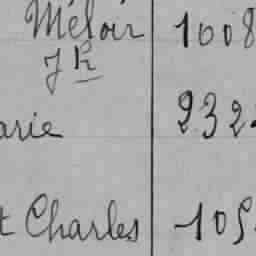 Méloir 1008
J R
arie 232
t Charles 105